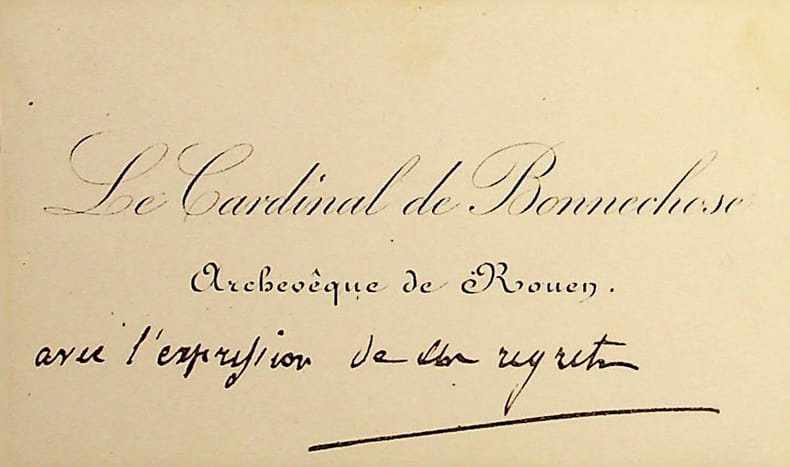 Le Cardinal de Bonnechose
Archevêque de Rouen.
avec l'expression de ses regrets